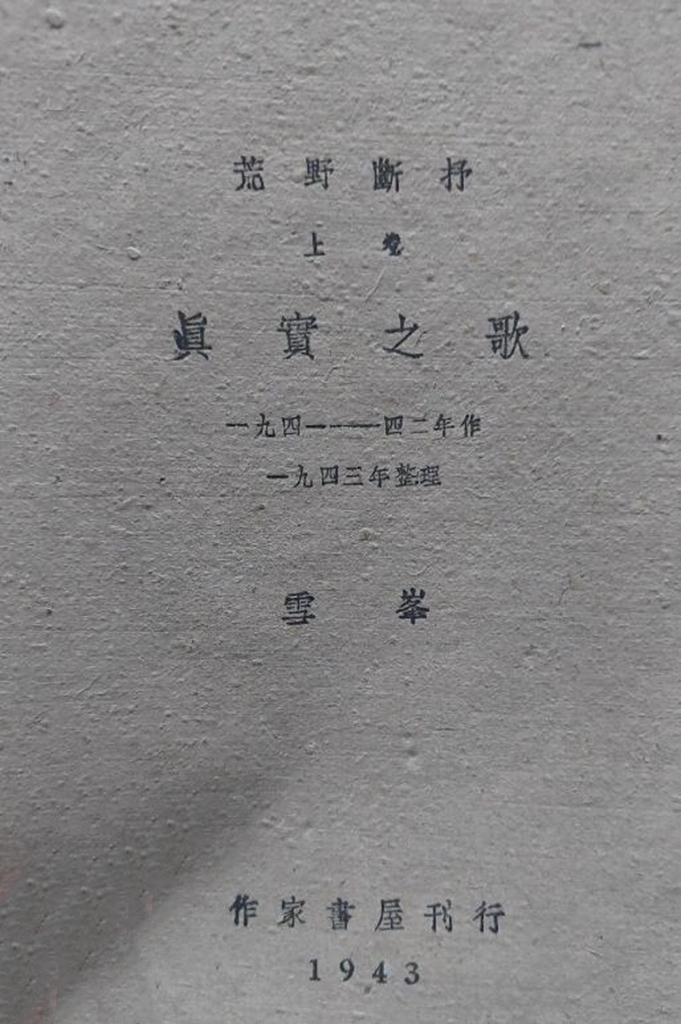 荒野斷抒
上卷
眞實之歌
一九四一——四二年作
一九四三年整理
雪峯
作家書屋刊行
1943